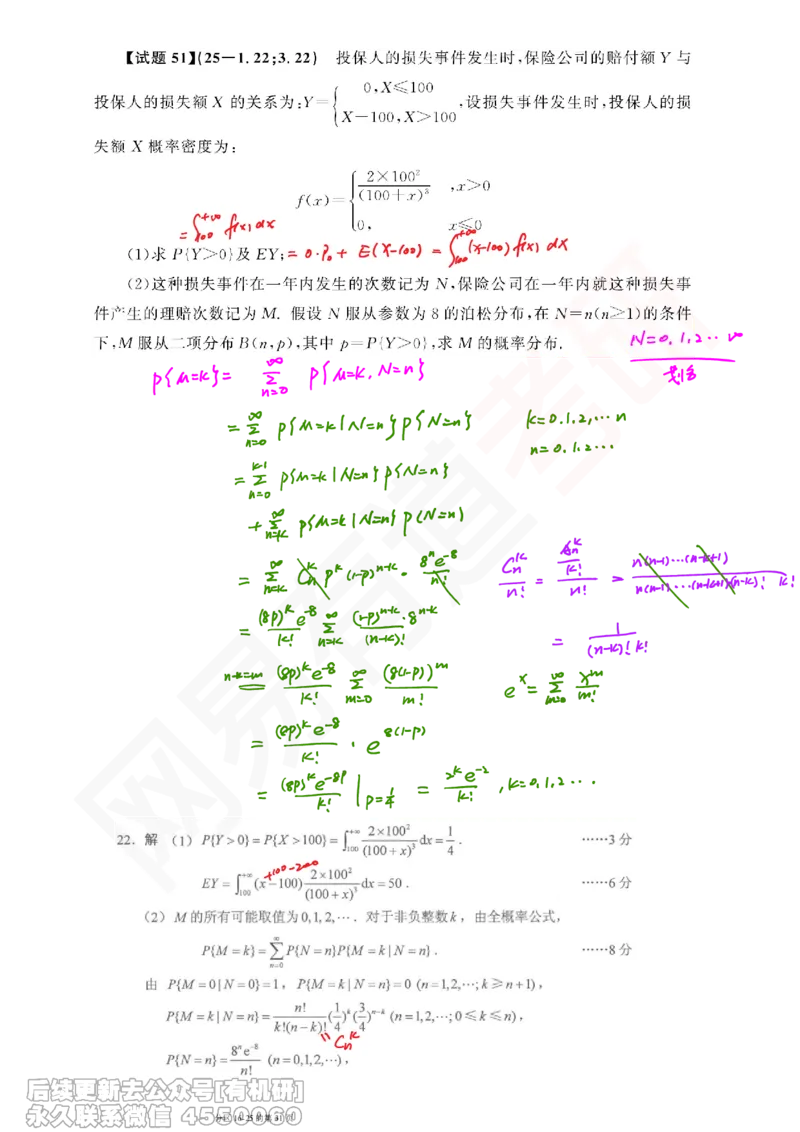 【试题 51】(25—1.22;3.22) 投保人的损失事件发生时,保险公司的赔付额 Y 与
投保人的损失额 X 的关系为:Y={0,X≤100
X−100,X>100 ,设损失事件发生时,投保人的损
失额 X 概率密度为:
f(x)={2×100²/(100+x)³ ,x>0
0, x≤0
=∫₁₀₀^{+∞} f(x)dx
(1)求 P{Y>0}及 EY; = 0·P₀ + E(X-100) = ∫₁₀₀^{+∞} (x-100) f(x) dx
(2)这种损失事件在一年内发生的次数记为 N,保险公司在一年内就这种损失事
件产生的理赔次数记为 M. 假设 N 服从参数为 8 的泊松分布,在 N=n(n≥1)的条件
下,M 服从二项分布 B(n,p),其中 p=P{Y>0},求 M 的概率分布.
N=0,1,2…∞
划分
P{M=k}= ∑_{n=0}^{∞} P{M=k, N=n}
= ∑_{n=0}^{∞} P{M=k|N=n}P{N=n} k=0,1,2,…n
n=0,1,2…
= ∑_{n=0}^{k-1} P{M=k|N=n}P{N=n}
+ ∑_{n=k}^{∞} P{M=k|N=n}P(N=n)
= ∑_{n=k}^{∞} C_n^k p^k (1-p)^{n-k} · 8^n e^{-8}/n! C_n^k/n! = (A_n^k/k!)/n! = n(n-1)…(n-k+1)/n(n-1)…(n-k+1)(n-k)! k!
= (8p)^k e^{-8}/k! ∑_{n=k}^{∞} (1-p)^{n-k}·8^{n-k}/(n-k)! = 1/(n-k)! k!
n-k=m (8p)^k e^{-8}/k! ∑_{m=0}^{∞} (8(1-p))^m/m! e^x = ∑_{m=0}^{∞} x^m/m!
= (8p)^k e^{-8}/k! · e^{8(1-p)}
= (8p)^k e^{-8p}/k! |_{p=1/4} = 2^k e^{-2}/k! , k=0,1,2…
22. 解 (1) P{Y>0}=P{X>100}=∫₁₀₀^{+∞} 2×100²/(100+x)³ dx=1/4. ……3 分
+100-200
EY=∫₁₀₀^{+∞}(x−100) 2×100²/(100+x)³ dx=50. ……6 分
(2) M 的所有可能取值为 0,1,2,⋯. 对于非负整数 k,由全概率公式,
P{M=k}=∑_{n=0}^{∞} P{N=n}P{M=k|N=n}. ……8 分
由 P{M=0|N=0}=1, P{M=k|N=n}=0 (n=1,2,⋯;k≥n+1),
P{M=k|N=n}=n!/k!(n−k)! (1/4)^k (3/4)^{n−k} (n=1,2,⋯;0≤k≤n),
" C_n^k
P{N=n}=8^n e^{-8}/n! (n=0,1,2,⋯),
后续更新去公众号[有机研]
永久联系微信 4550060
网易有道考研